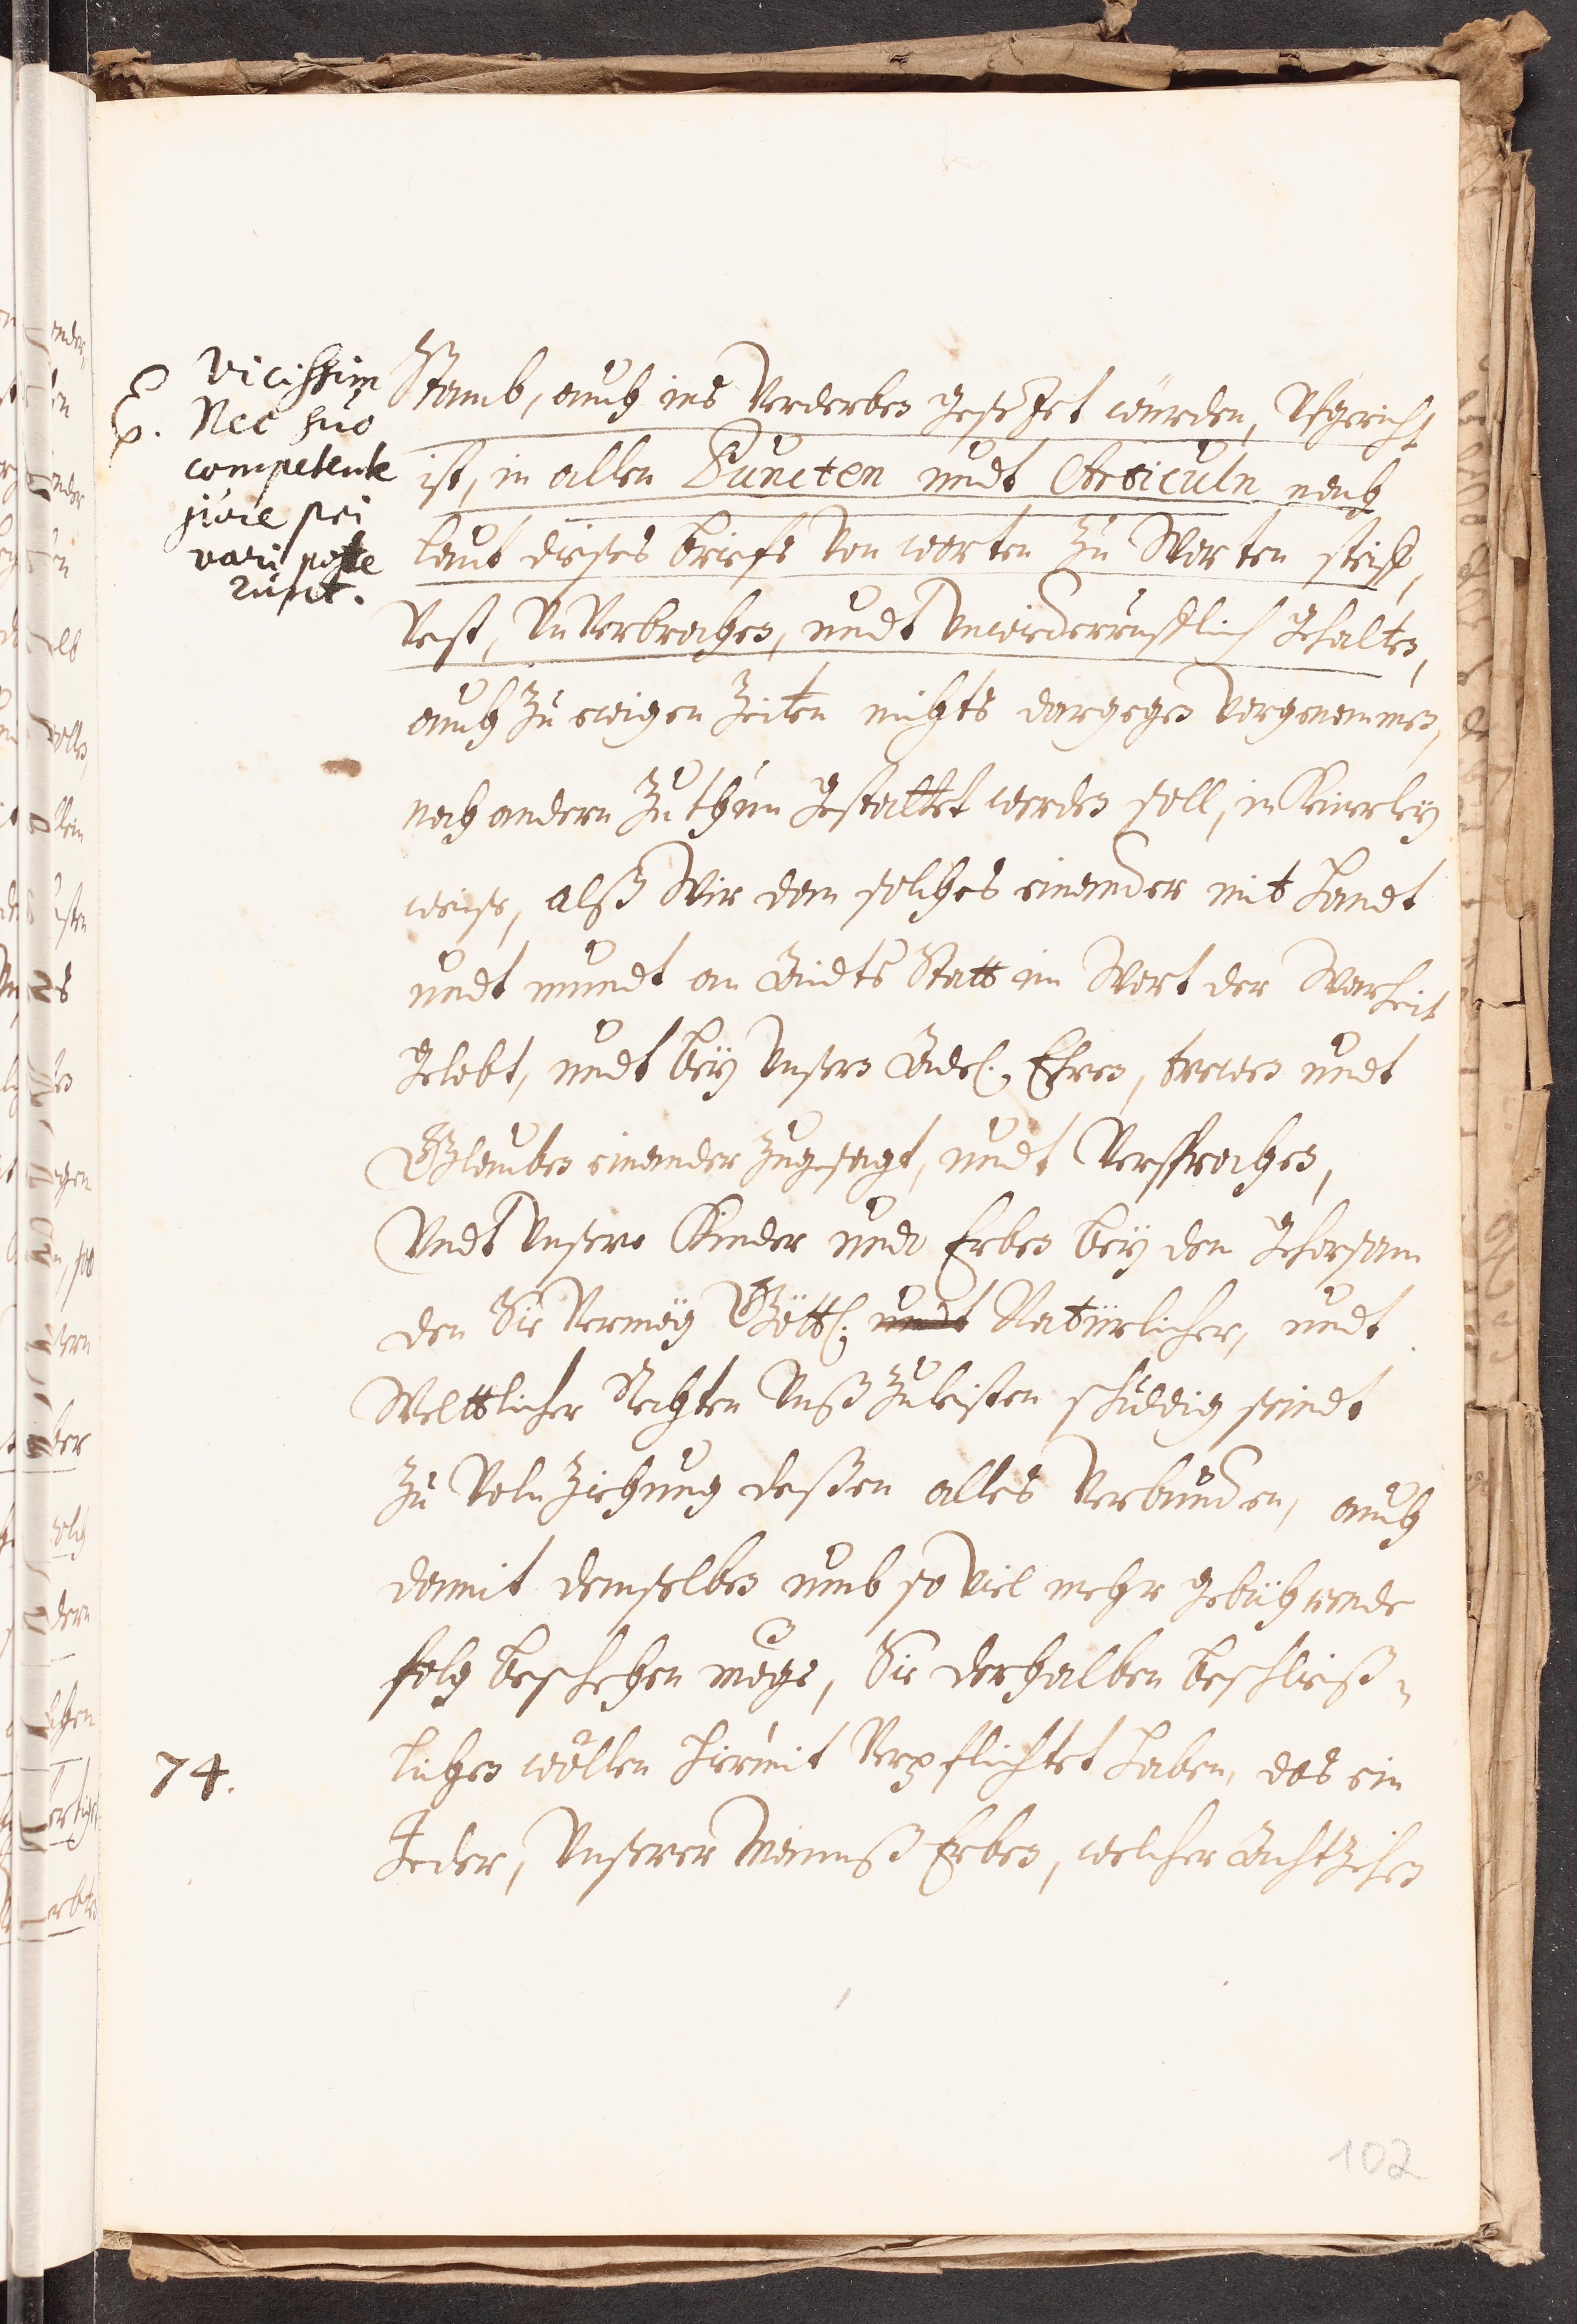 vicissim
E. Nec suo
competente
jure pri
vari pote
runt.
Stamb, auch ins Verderben gesetzet würden, Ufgericht
ist, in allen Puncten undt Articuln nach
laut dieses briefs von worten zu Worten steiff,
Vest, UnVerbrochen, undt Unwiderrufflich gehalten,
auch zu ewigen Zeiten nichts dargegen vorgenommen,
noch andern zu thun gestattet werden soll, in Keinerley
weise, alß Wir dan solches einander mit Handt
undt mundt an Aidts Statt im Wort der Warheit
gelobt, undt bey Unsern Adel. Ehren, trewen undt
Glauben einander zugesagt, undt Versprochen,
Undt Unsere Kinder undt Erben bey dem Gehorsam
den Sie Vermög Göttl. undt Natürlicher, undt
Weltlicher Rechten Unß zuleisten schuldig seindt
zu VolnZiehung deßen alles Verbunden, auch
damit demselben umb so viel mehr gebührende
folg beschehen möge, Sie derhalben beschließ-
lichen wöllen hiermit Verpflichtet haben, das ein
74.
Jeder, Unserer Mannß Erben, welcher Achtzehen
102